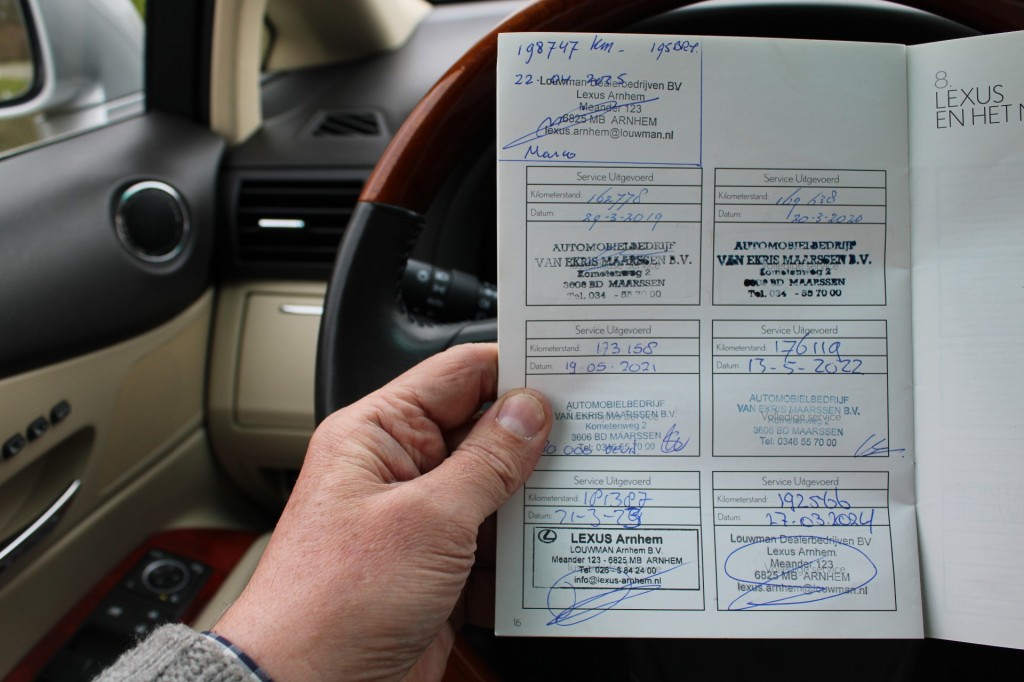 198747 km. 195BRY.
22-04 2025
Louwman Dealerbedrijven BV
Lexus Arnhem
Meander 123
6825 MB ARNHEM
lexus.arnhem@louwman.nl
Marco
Service Uitgevoerd
Kilometerstand: 162778
Datum: 29-3-2019
AUTOMOBIELBEDRIJF
VAN EKRIS MAARSSEN B.V.
Kometenweg 2
3606 BD MAARSSEN
Tel. 034 - 55 70 00
Service Uitgevoerd
Kilometerstand:
Datum: 20-3-2020
AUTOMOBIELBEDRIJF
VAN EKRIS MAARSSEN B.V.
Kometenweg 2
3606 BD MAARSSEN
Tel. 034 - 55 70 00
Service Uitgevoerd
Kilometerstand: 173158
Datum: 19-05-2021
AUTOMOBIELBEDRIJF
VAN EKRIS MAARSSEN B.V.
Kometenweg 2
3606 BD MAARSSEN
Tel: 0346 55 70 00
Service Uitgevoerd
Kilometerstand: 176119
Datum: 13-5-2022
AUTOMOBIELBEDRIJF
VAN EKRIS MAARSSEN B.V.
Volledige service
Kometenweg 2
3606 BD MAARSSEN
Tel: 0346 55 70 00
Service Uitgevoerd
Kilometerstand: 181387
Datum: 21-3-23
LEXUS Arnhem
LOUWMAN Arnhem B.V.
Meander 123 - 6825 MB ARNHEM
Tel. 026 - 3 84 24 00
info@lexus-arnhem.nl
Service Uitgevoerd
Kilometerstand: 192566
Datum: 27.03.2024
Louwman Dealerbedrijven BV
Lexus Arnhem
Meander 123
6825 MB ARNHEM
lexus.arnhem@louwman.nl
16
8.
LEXUS
EN HET